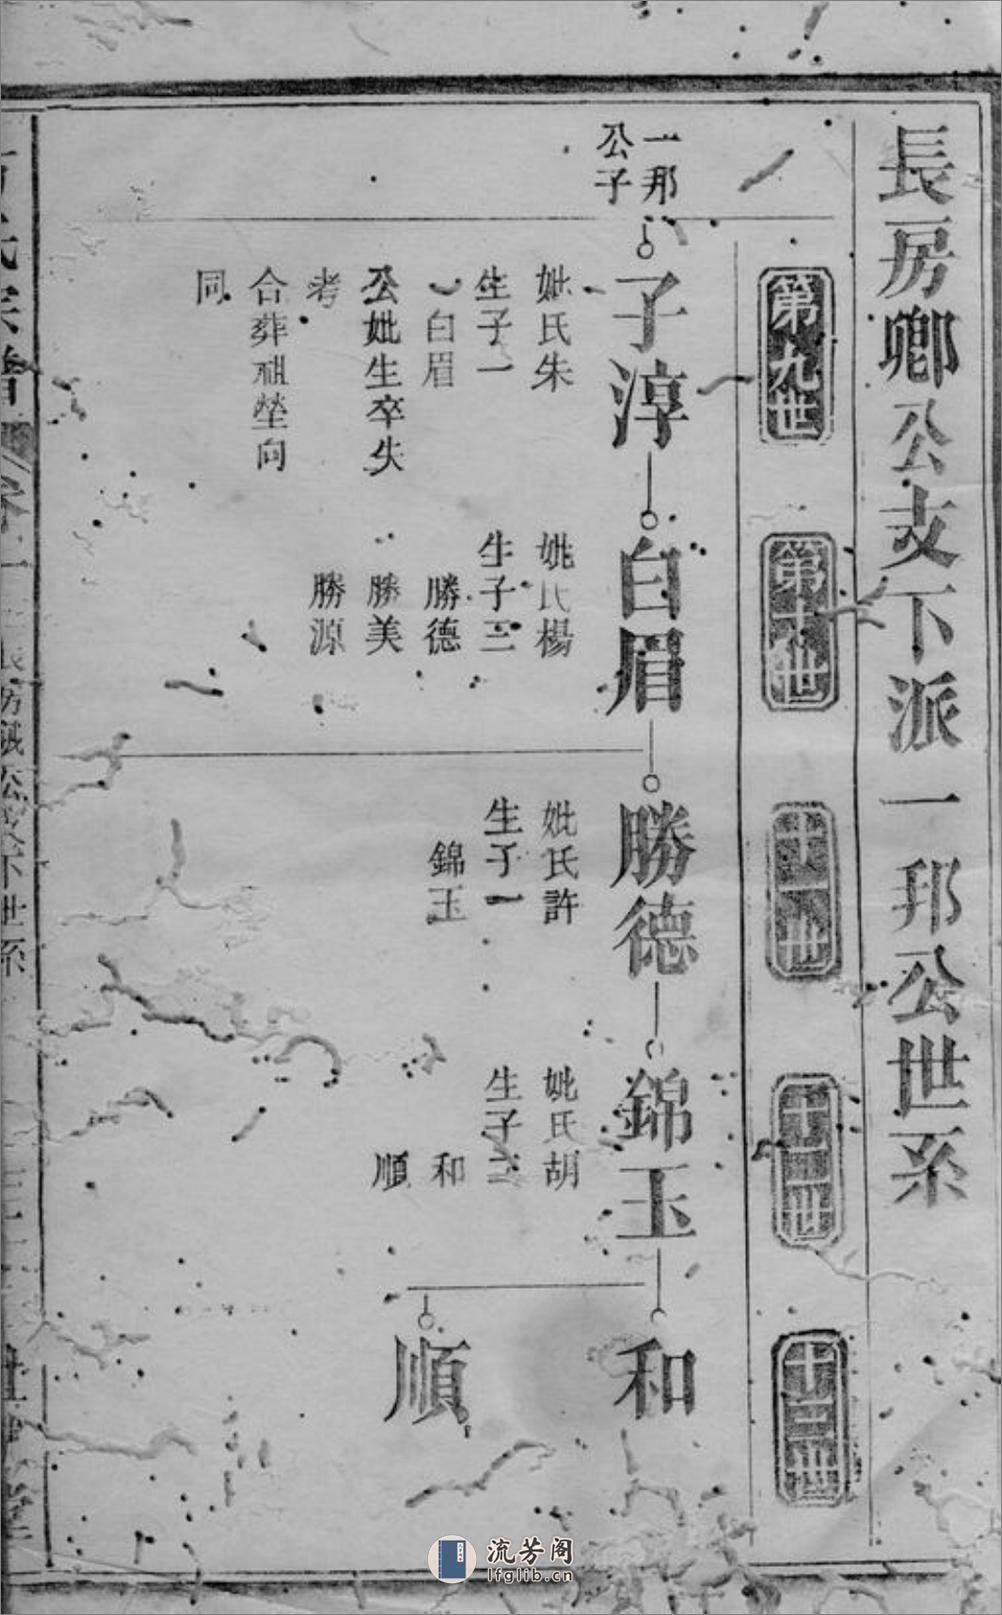 長房卿公支下派一邦公世系
第九世
第十世
十一世
十二世
十三世
一邦
公子
子淳
妣氏朱
生子一
白眉
公妣生卒失
考
合葬祖塋向
同
白眉
妣氏楊
生子三
勝德
勝美
勝源
勝德
妣氏許
生子一
錦玉
錦玉
妣氏胡
生子二
和
順
和
順
流芳阁
lfglib.cn